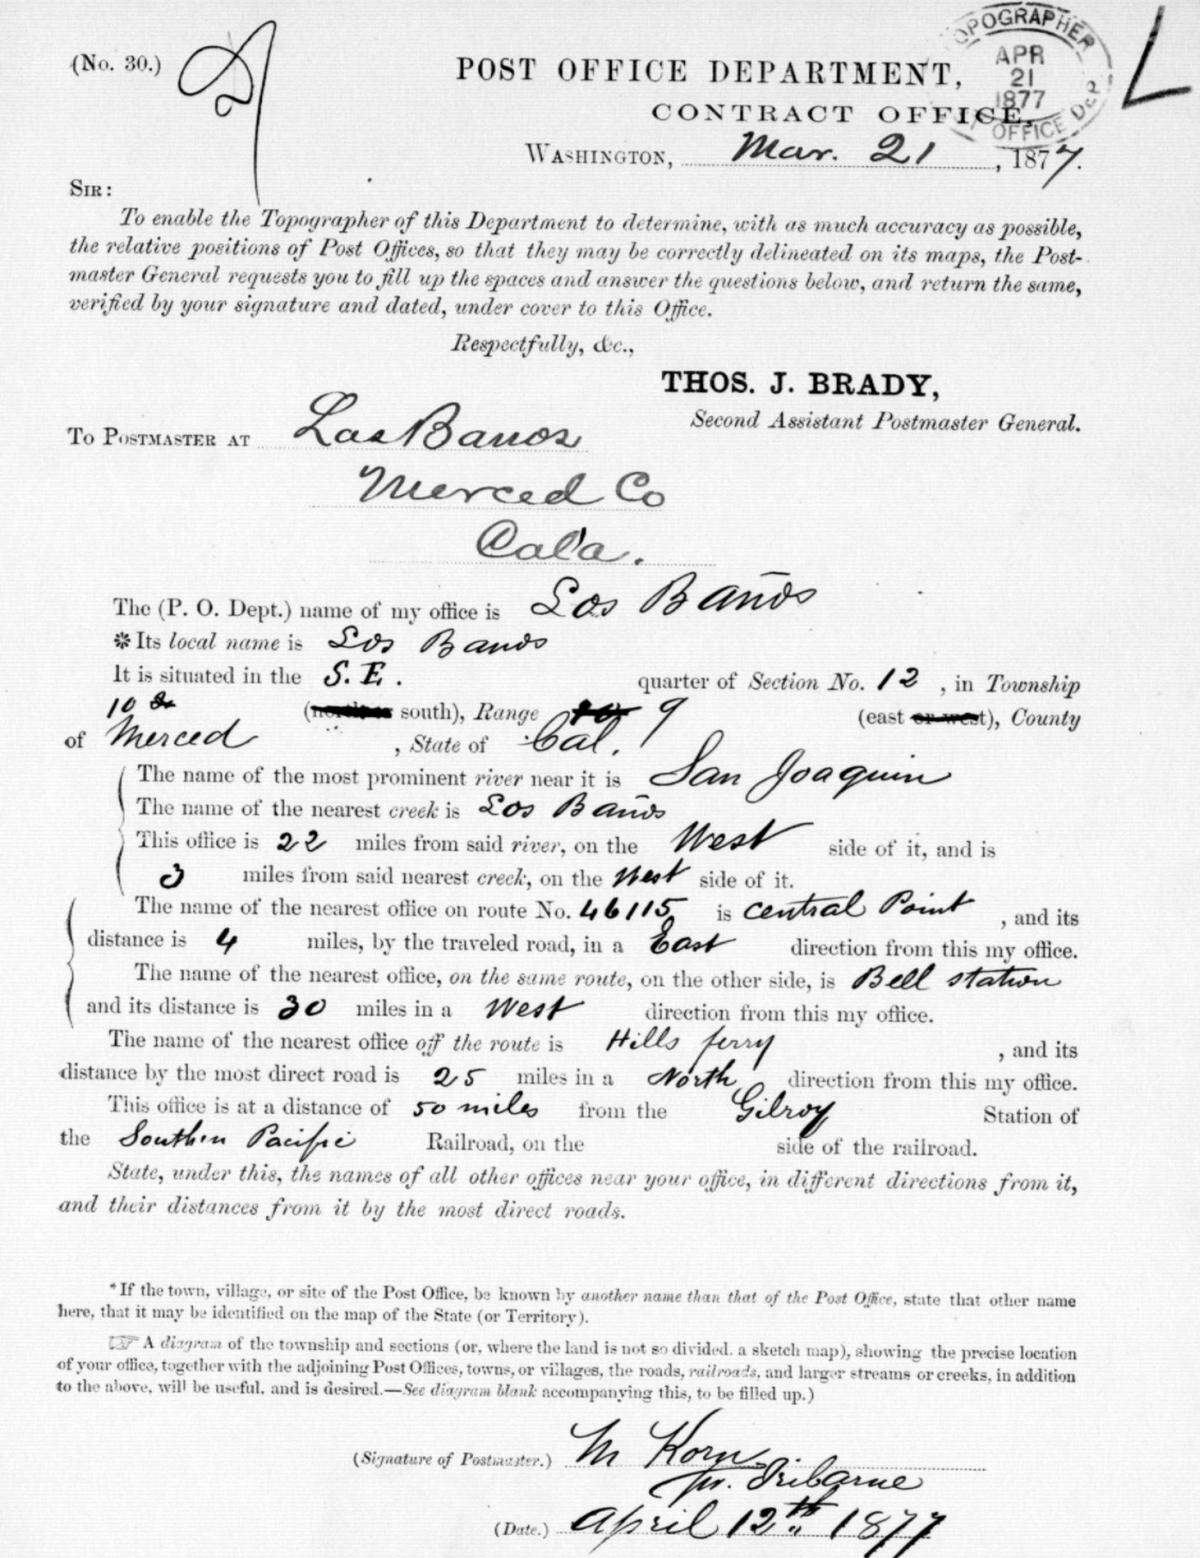 (No. 30.)
TOPOGRAPHER
APR
21
1877
OFFICE DEP
POST OFFICE DEPARTMENT,
CONTRACT OFFICE,
WASHINGTON, Mar. 21, 1877.
SIR:
To enable the Topographer of this Department to determine, with as much accuracy as possible,
the relative positions of Post Offices, so that they may be correctly delineated on its maps, the Post-
master General requests you to fill up the spaces and answer the questions below, and return the same,
verified by your signature and dated, under cover to this Office.
Respectfully, &c.,
THOS. J. BRADY,
Second Assistant Postmaster General.
TO POSTMASTER AT Los Banos
Merced Co
Cala.
The (P. O. Dept.) name of my office is Los Baños
*Its local name is Los Banos
It is situated in the S. E. quarter of Section No. 12, in Township
10 (north or south), Range 9 (east or west), County
of Merced, State of Cal.
The name of the most prominent river near it is San Joaquin
The name of the nearest creek is Los Baños
This office is 22 miles from said river, on the West side of it, and is
3 miles from said nearest creek, on the West side of it.
The name of the nearest office on route No. 46115 is central Point, and its
distance is 4 miles, by the traveled road, in a East direction from this my office.
The name of the nearest office, on the same route, on the other side, is Bell station
and its distance is 30 miles in a West direction from this my office.
The name of the nearest office off the route is Hills ferry, and its
distance by the most direct road is 25 miles in a North direction from this my office.
This office is at a distance of 50 miles from the Gilroy Station of
the Southern Pacific Railroad, on the side of the railroad.
State, under this, the names of all other offices near your office, in different directions from it,
and their distances from it by the most direct roads.
*If the town, village, or site of the Post Office, be known by another name than that of the Post Office, state that other name
here, that it may be identified on the map of the State (or Territory).
☞ A diagram of the township and sections (or, where the land is not so divided, a sketch map), showing the precise location
of your office, together with the adjoining Post Offices, towns, or villages, the roads, railroads, and larger streams or creeks, in addition
to the above, will be useful, and is desired.—See diagram blank accompanying this, to be filled up.)
(Signature of Postmaster.) M Korn
pr. Iribarne
(Date.) April 12th 1877